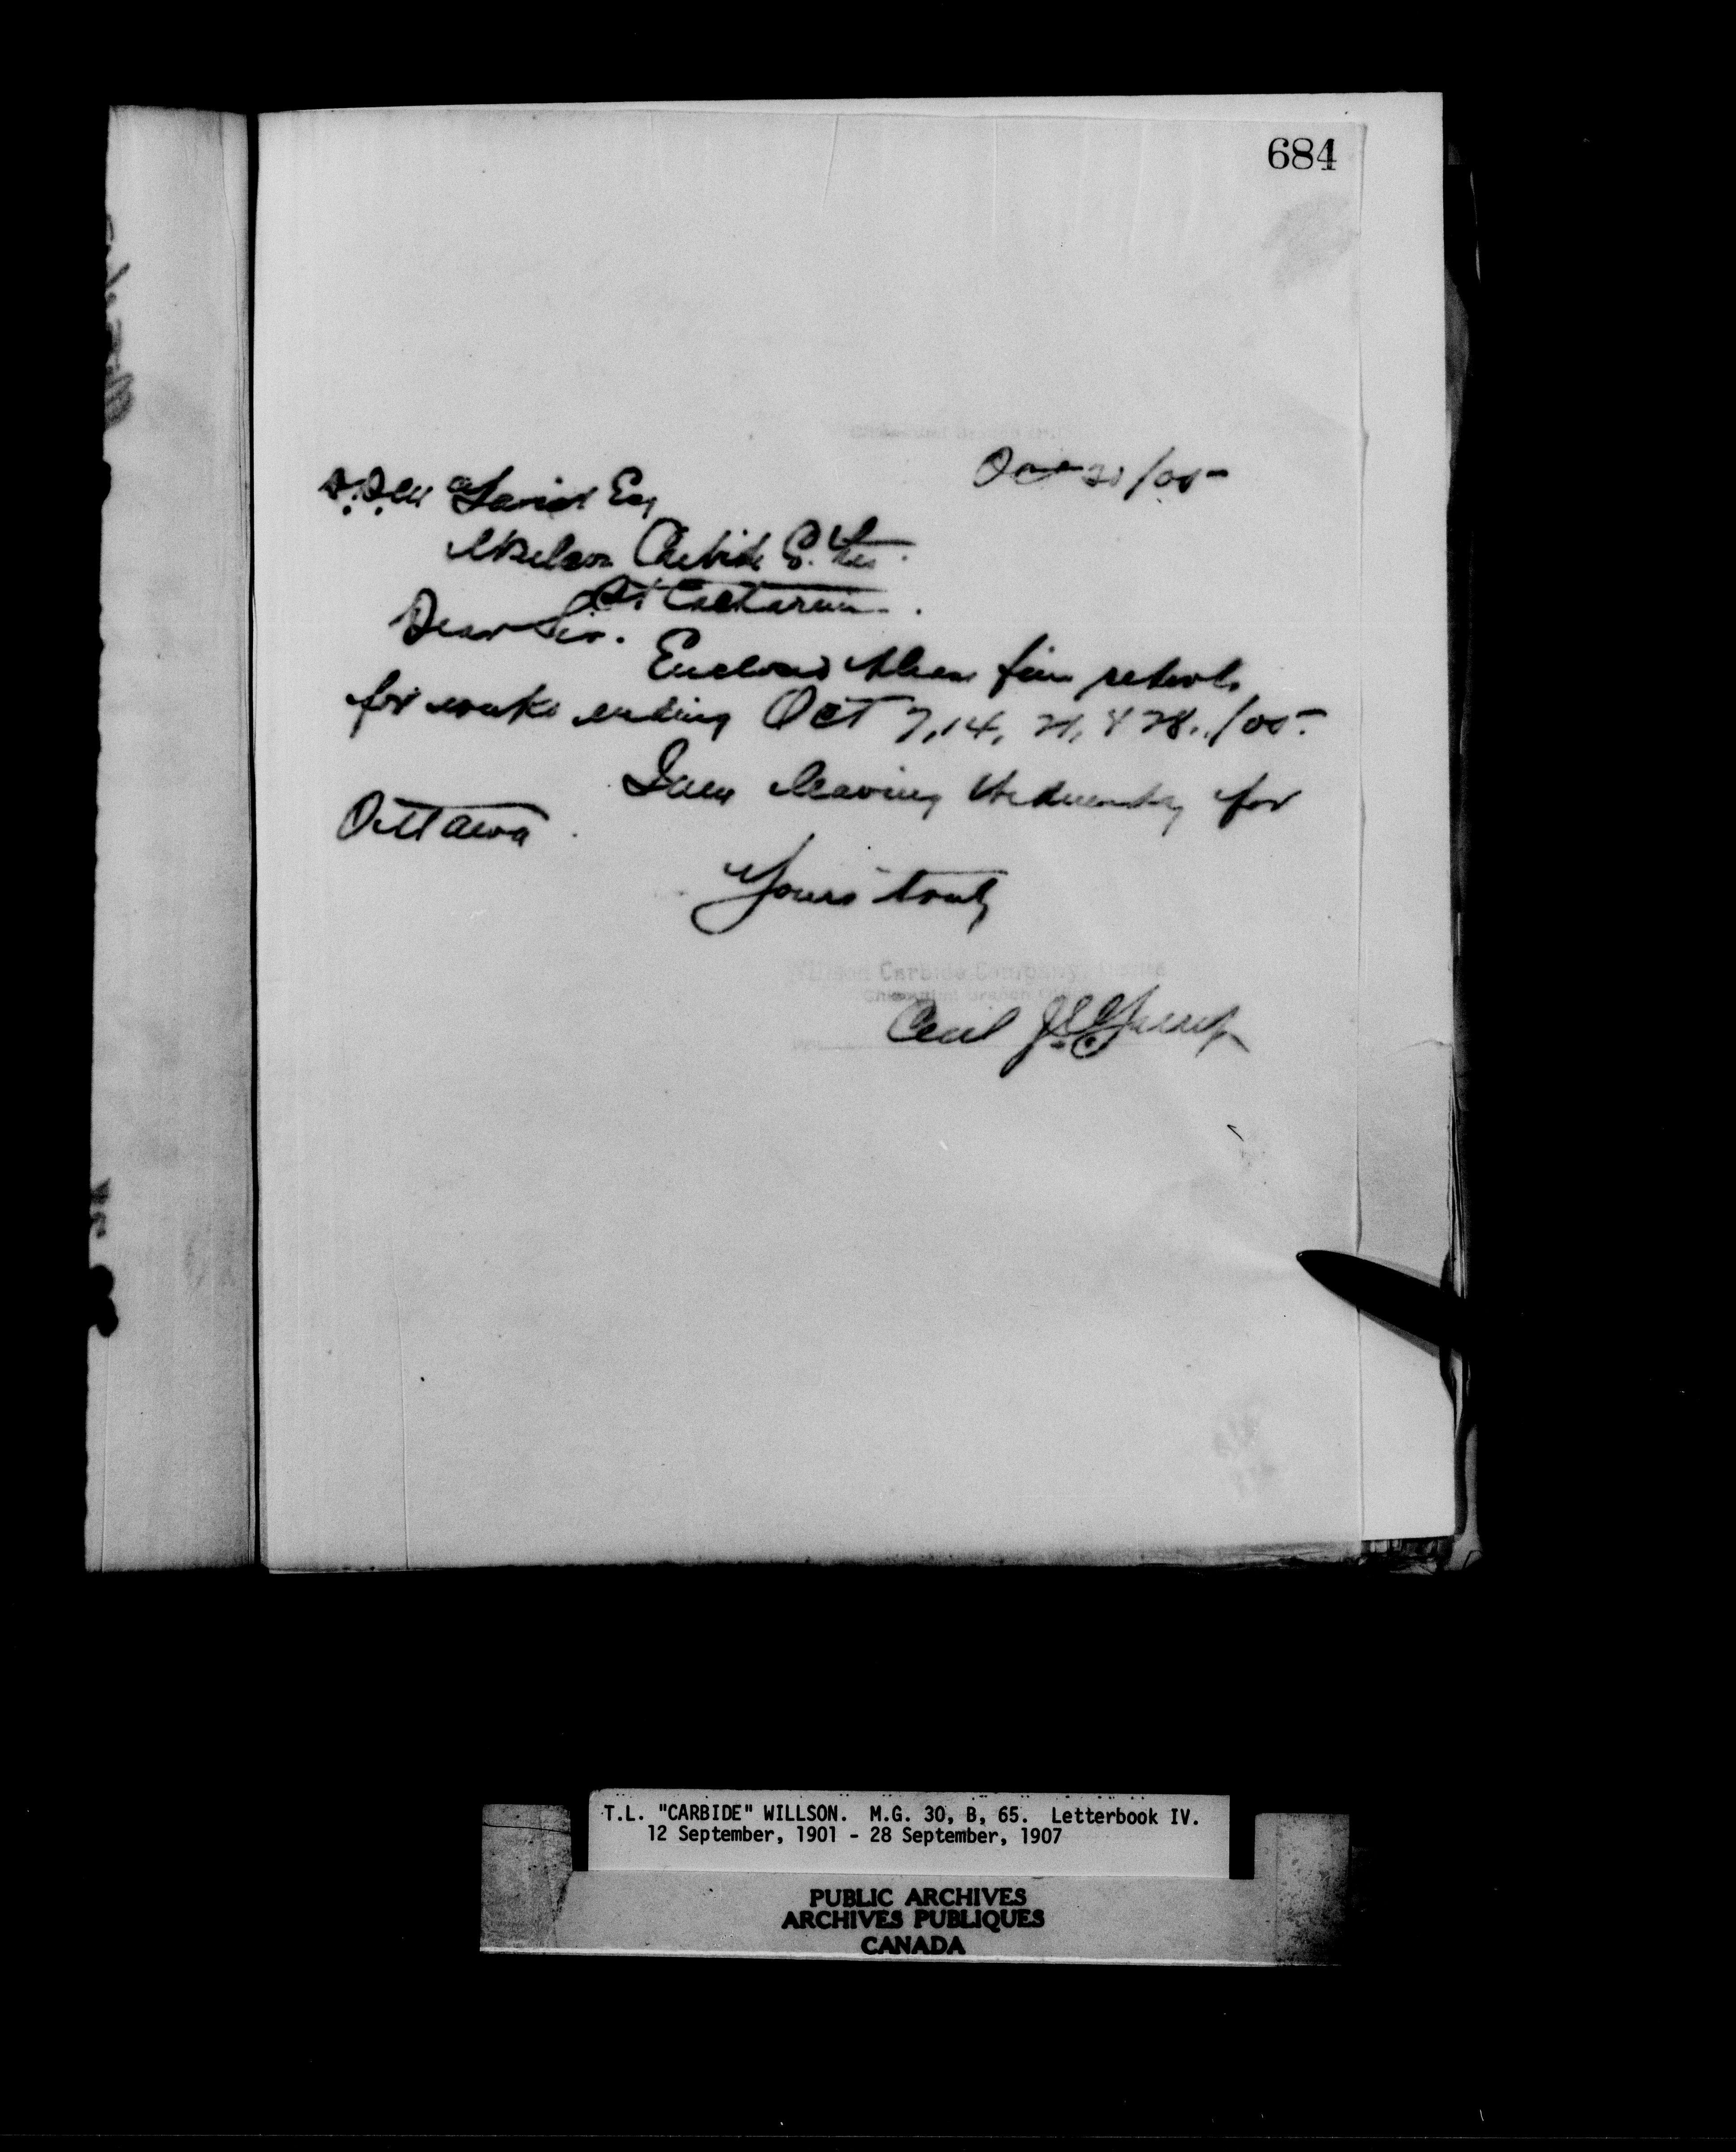 684
Oct 30/05
Esq
Willson Carbide Co. Ltd.
St Catharines.
Dear Sir.
Enclosed please find
for weeks ending Oct 7, 14, 21, & 28./05.
I am leaving Wednesday for
Ottawa.
Yours truly
Willson Carbide Company,
Cecil
T.L. "CARBIDE" WILLSON. M.G. 30, B, 65. Letterbook IV.
12 September, 1901 - 28 September, 1907
PUBLIC ARCHIVES
ARCHIVES PUBLIQUES
CANADA